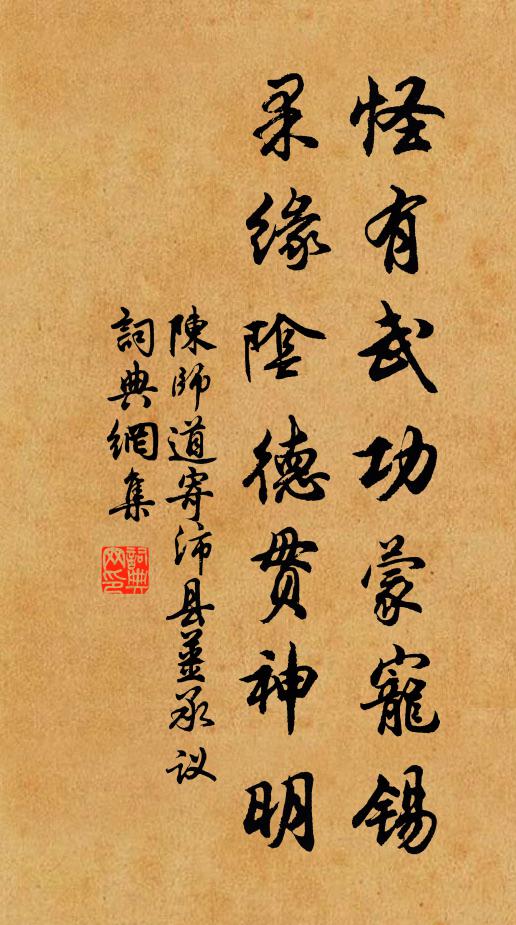 怪有武功蒙寵錫
果緣陰德貫神明
陳師道寄沛县薑承议
詞典網集
詞典網印